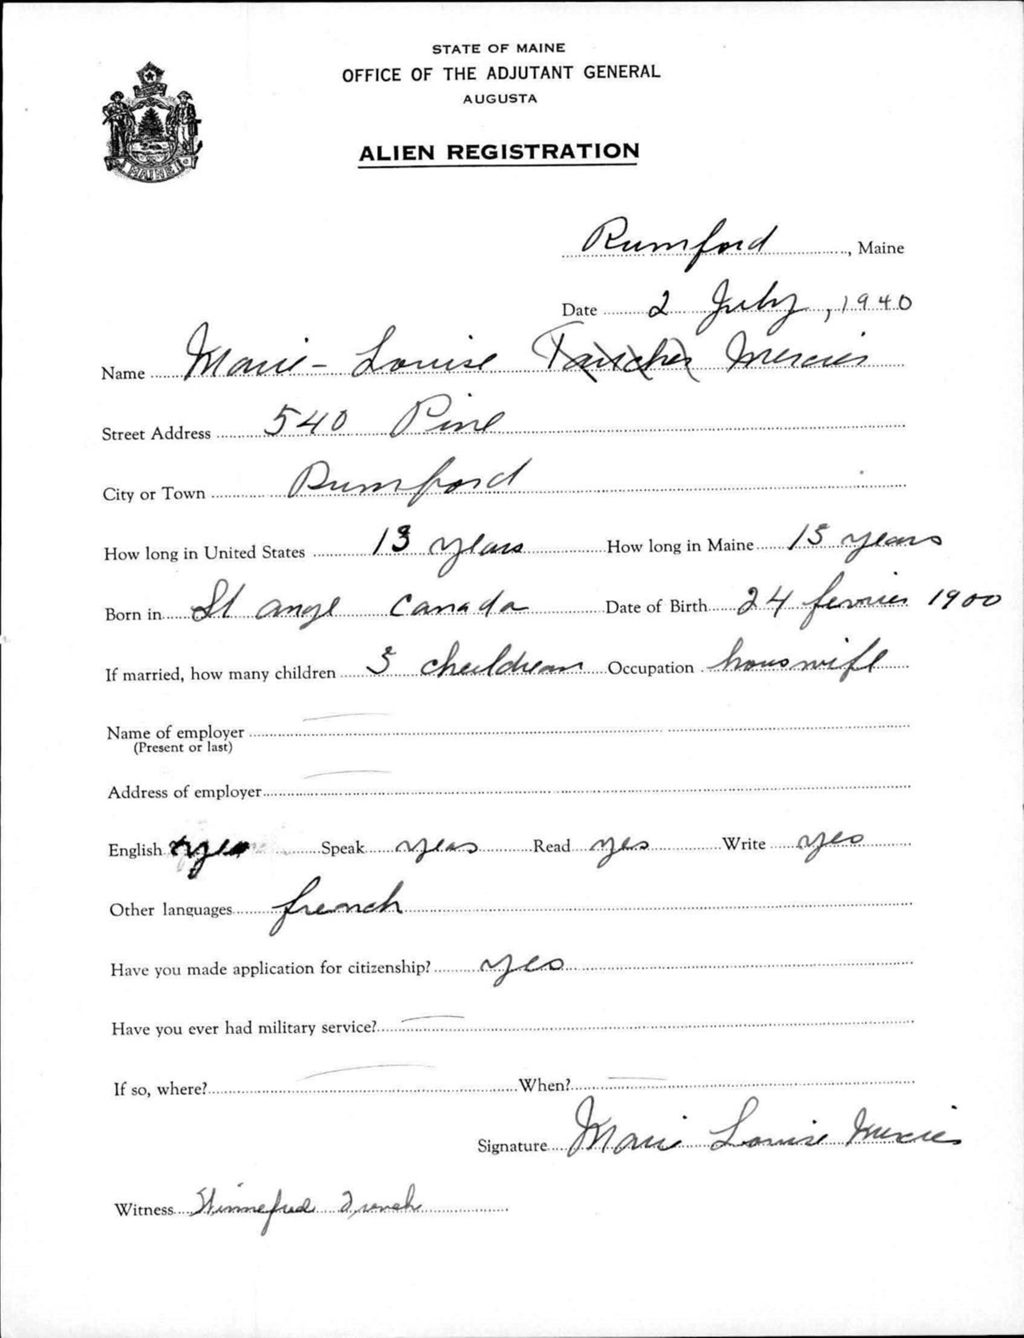 STATE OF MAINE
OFFICE OF THE ADJUTANT GENERAL
AUGUSTA
ALIEN REGISTRATION
MAINE
Rumford, Maine
Date 2 July, 1940
Name Marie-Louise Mercier
Street Address 540 Pine
City or Town Rumford
How long in United States 13 years How long in Maine 15 years
Born in St ange Canada Date of Birth 24 fevrier 1900
If married, how many children 3 cheildrean Occupation houswife
Name of employer
(Present or last)
Address of employer
English yes Speak yeas Read yes Write yes
Other languages french
Have you made application for citizenship? yes
Have you ever had military service?
If so, where? When?
Signature Marie Louise Mercier
Witness Winnefred French